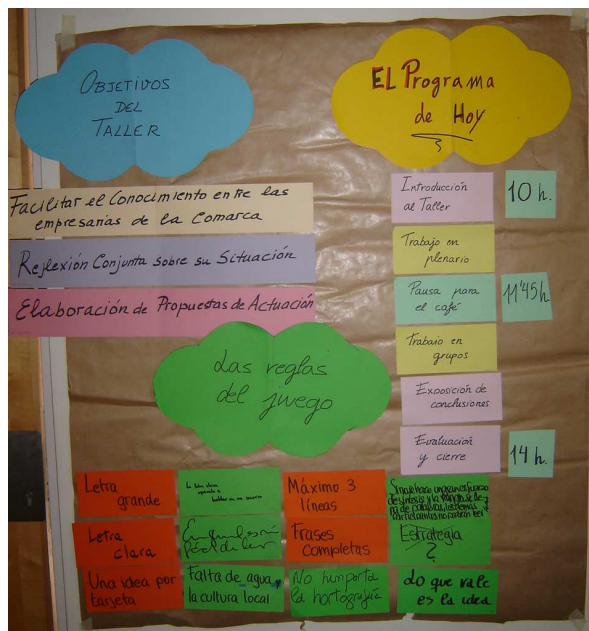 OBJETIVOS
DEL
TALLER
Facilitar el Conocimiento entre las
empresarias de la Comarca
Reflexión Conjunta sobre su Situación
Elaboración de Propuestas de Actuación
EL Programa
de Hoy
Introducción
al Taller
10 h.
Trabajo en
plenario
Pausa para
el café
11'45h
Trabajo en
grupos
Exposición de
conclusiones
Evaluación
y cierre
14 h.
Las reglas
del juego
Letra
grande
Máximo 3
líneas
Letra
clara
Frases
completas
Estrategia
?
Una idea por
tarjeta
Falta de agua,
la cultura local
No himporta
la hortografía
Lo que vale
es la idea